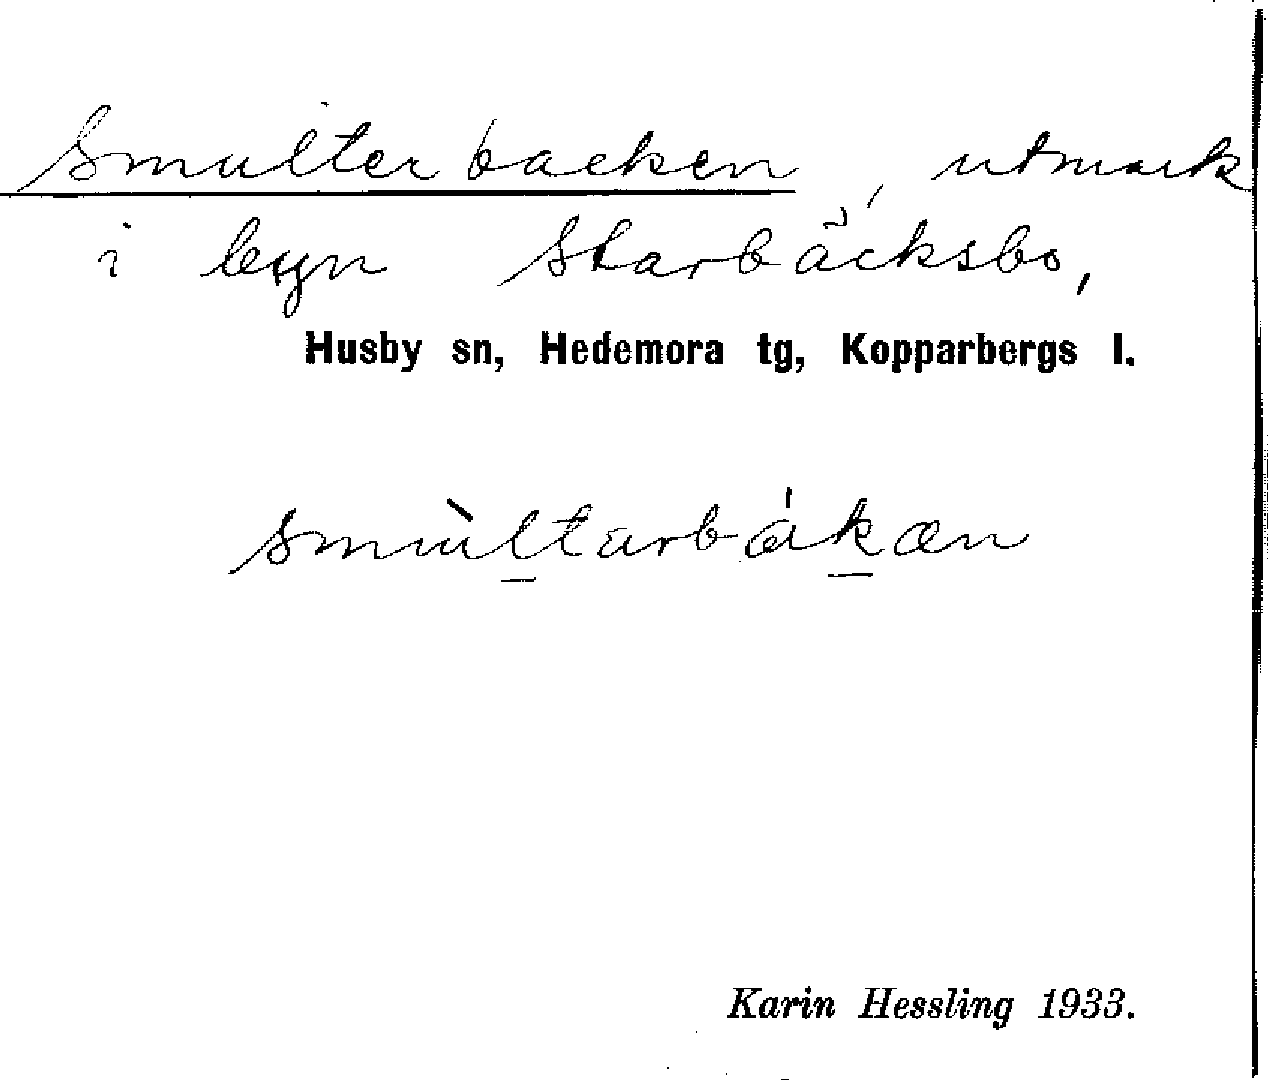 Smulterbacken, utmark
i byn Starbäcksbo,
Husby sn, Hedemora tg, Kopparbergs l.
smùltarbákæn
Karin Hessling 1933.